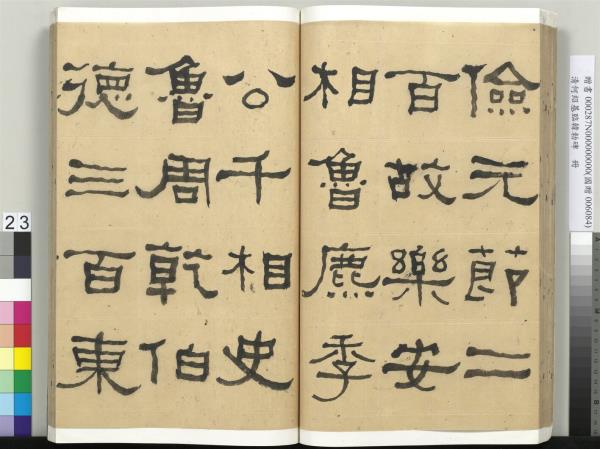 儉元節二
百故樂安
相魯麃季
公千相史
魯周乾伯
德三百東
贈書 000287N000000000(國贈 006084)
清何紹基臨韓勑碑 冊
23